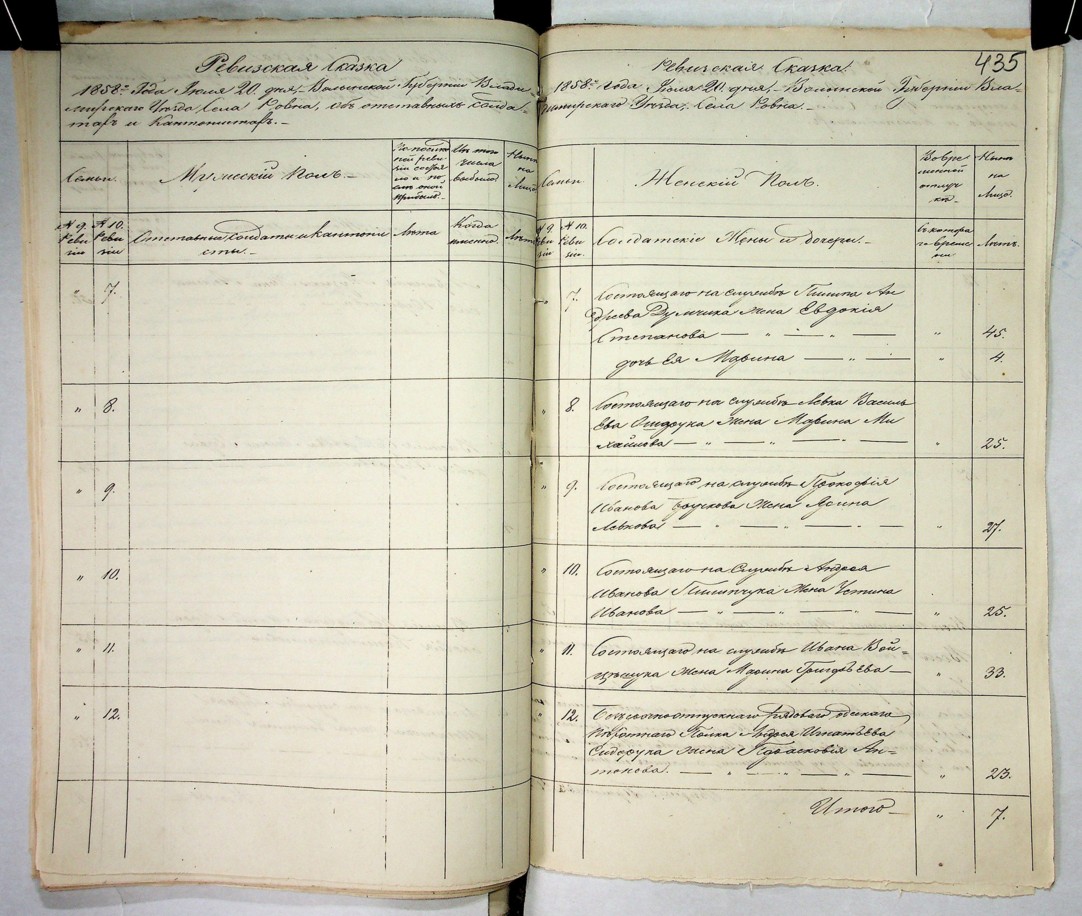 Ревизская Сказка
1858го Года Июля 20. дня, Волынской Губернии Влади
мирского Уезда Села Ровна, об отставных солда
тах и Кантонистах.
Семьи.
Мужеский Полъ
По послед
ней реви
зии состоя
ло и по
сле оной
прибыло.
Из того
числа
выбыло
Ныне
на
Лицо
№ 9.
Реви
зии
№ 10.
Реви
зіи
Отставные Солдаты и Кантони
сты.
Лета
Когда
именно.
Летъ
" 7.
" 8.
" 9.
" 10.
" 11.
" 12.
435
Ревизская Сказка
1858го Года Июля 20. дня, Волынской Губерній Вла
димирского Уезда, Села Ровна.
Семьи.
Женскій Полъ.
Во вре
менной
отлуч
ке
Ныне
на
Лицо.
№ 9.
Реви
зии
№ 10.
Реви
зии.
Солдатскіе Жены и дочери.
съ котора
го време
ни
Летъ.
" 7. Состоящаго на службе Пилипа Ан
дреева Думчика жена Евдокія
Степанова — " — " 45.
дочь Ея Марина — " — " 4.
" 8. Состоящаго на службе Левка Василь
Ева Ощерука жена Марина Ми
хайлова — " — " — " — " 25.
" 9. Состоящаго на службе Прокофія
Иванова жена
Левкова — " — " — " 27.
" 10. Состоящаго на Службе Андрея
Иванова Пилипчука жена Устина
Иванова — " — " — " — " 25.
" 11. Состоящаго на службе Ивана Вой-
цещука жена Марина Григорьева — " 33.
" 12. Безсрочноотпускнаго рядоваго
Пехотнаго Полка Андрея Игнатьева
Сидорука жена Парасковія Ан-
тонова. — " — " — " — " 23.
Итого — " 7.